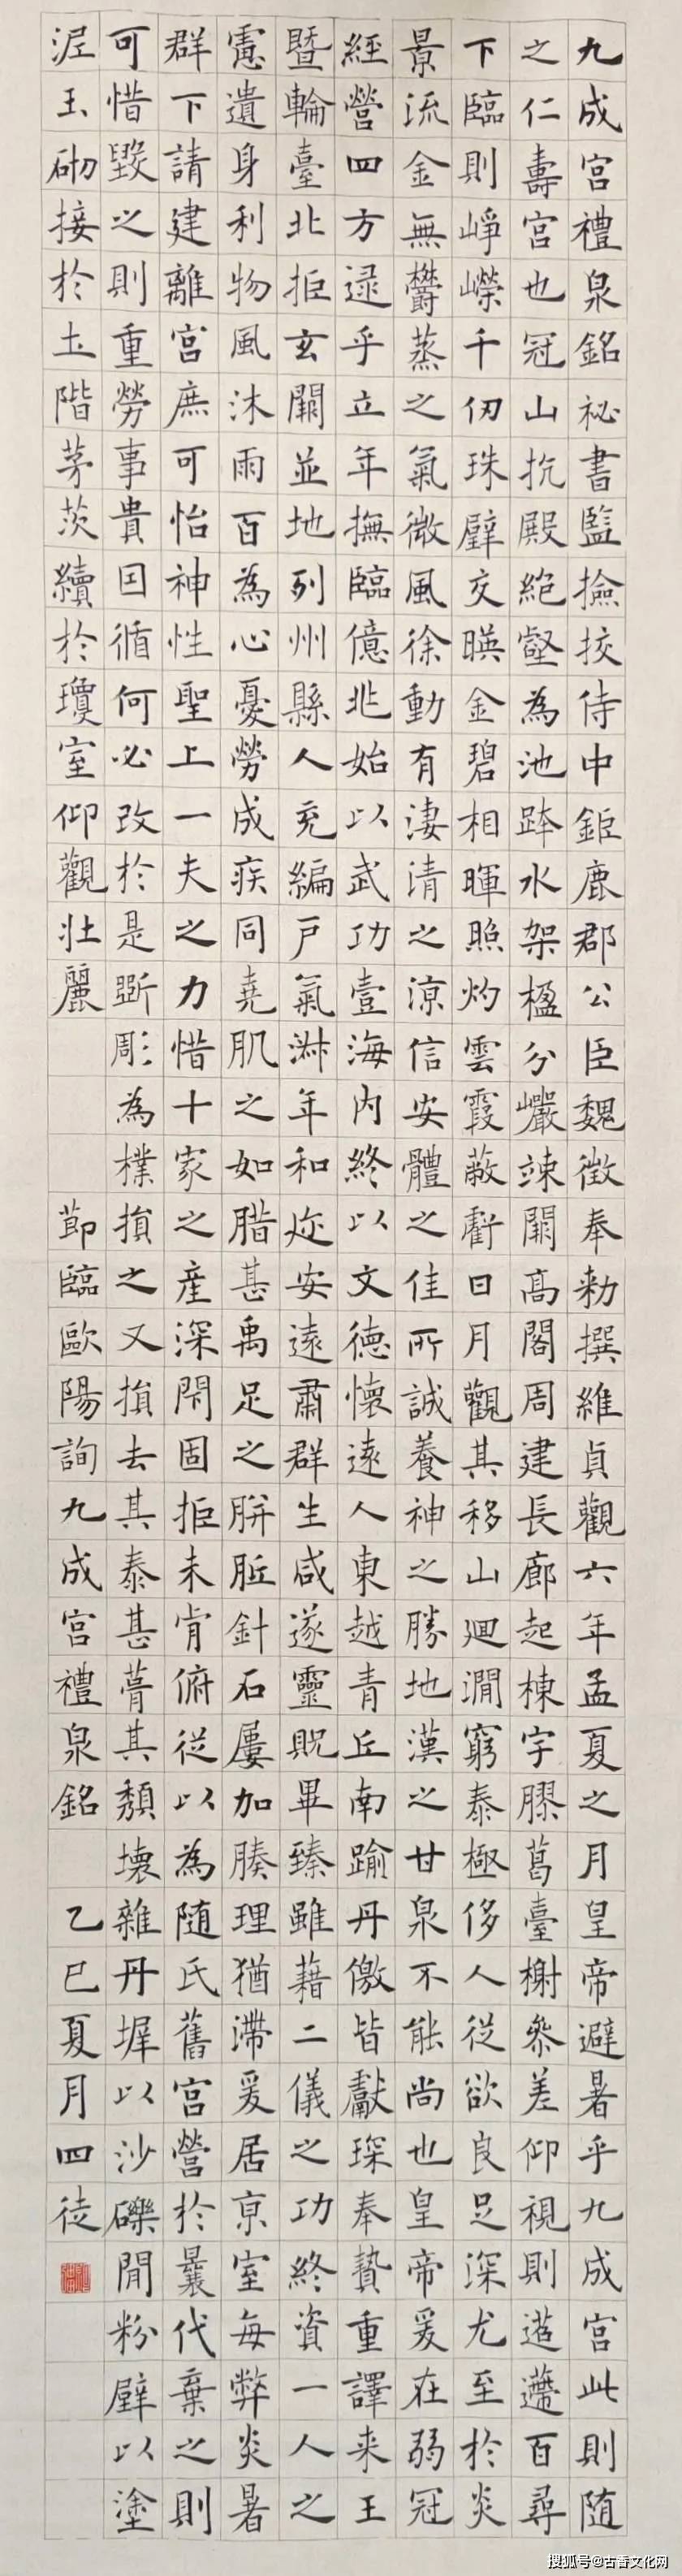 九成宮禮泉銘祕書監撿挍侍中鉅鹿郡公臣魏徵奉勅撰維貞觀六年孟夏之月皇帝避暑乎九成宮此則随
之仁壽宮也冠山抗殿絶壑為池跨水架楹分巖竦闕高閣周建長廊起棟宇膠葛臺榭參差仰視則迢遰百尋
下臨則崢嶸千仞珠壁交暎金碧相暉照灼雲霞蔽虧日月觀其移山廻澗窮泰極侈人從欲良足深尤至於炎
景流金無欝蒸之氣微風徐動有淒清之涼信安體之佳所誠養神之勝地漢之甘泉不能尚也皇帝爰在弱冠
經營四方逮乎立年撫臨億兆始以武功壹海内終以文德懷遠人東越青丘南踰丹儌皆獻琛奉贄重譯来王
暨輪臺北拒玄闕並地列州縣人充編戶氣淋年和迩安遠肅群生咸遂靈貺畢臻雖藉二儀之功終資一人之
慮遺身利物風沐雨百為心憂勞成疾同堯肌之如腊甚禹足之胼胝針石屢加腠理猶滯爰居京室每弊炎暑
群下請建離宮庶可怡神性聖上一夫之力惜十家之産深閇固拒未肯俯從以為随氏舊宮營於曩代棄之則
可惜毀之則重勞事貴因循何必改於是斵彫為樸損之又損去其泰甚葺其頹壞雜丹墀以沙礫間粉壁以塗
泥玉砌接於土階茅茨續於瓊室仰觀壯麗 節臨歐陽詢九成宮禮泉銘 乙巳夏月四徒
搜狐号@古香文化网